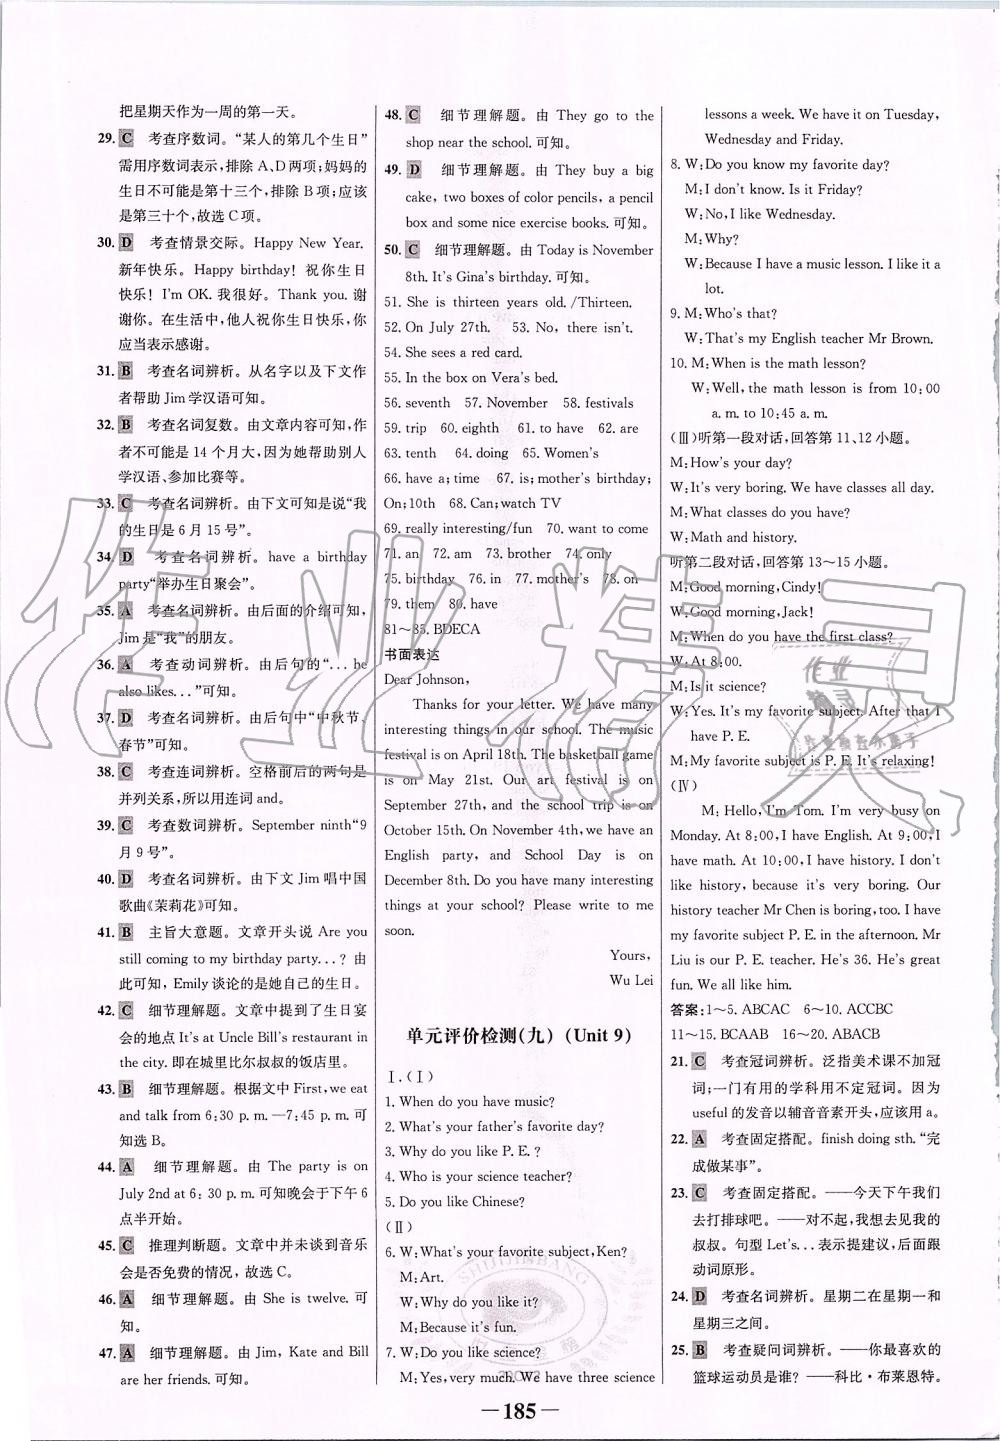 把星期天作为一周的第一天。
29. C 考查序数词。“某人的第几个生日”
需用序数词表示,排除A、D两项;妈妈的
生日不可能是第十三个,排除B项;应该
是第三十个,故选C项。
30. D 考查情景交际。Happy New Year.
新年快乐。Happy birthday! 祝你生日
快乐! I'm OK. 我很好。Thank you. 谢
谢你。在生活中,他人祝你生日快乐,你
应当表示感谢。
31. B 考查名词辨析。从名字以及下文作
者帮助Jim学汉语可知。
32. B 考查名词复数。由文章内容可知,作
者不可能是14个月大,因为她帮助别人
学汉语、参加比赛等。
33. C 考查名词辨析。由下文可知是说“我
的生日是6月15号”。
34. D 考查名词辨析。have a birthday
party“举办生日聚会”。
35. A 考查名词辨析。由后面的介绍可知,
Jim是“我”的朋友。
36. A 考查动词辨析。由后句的“... he
also likes...”可知。
37. D 考查名词辨析。由后句中“中秋节、
春节”可知。
38. C 考查连词辨析。空格前后的两句是
并列关系,所以用连词and。
39. C 考查数词辨析。September ninth“9
月9号”。
40. D 考查名词辨析。由下文Jim唱中国
歌曲《茉莉花》可知。
41. B 主旨大意题。文章开头说 Are you
still coming to my birthday party...? 由
此可知,Emily谈论的是她自己的生日。
42. C 细节理解题。文章中提到了生日宴
会的地点 It's at Uncle Bill's restaurant in
the city. 即在城里比尔叔叔的饭店里。
43. B 细节理解题。根据文中First, we eat
and talk from 6:30 p. m.—7:45 p. m. 可
知选B。
44. A 细节理解题。由 The party is on
July 2nd at 6:30 p. m. 可知晚会于下午6
点半开始。
45. C 推理判断题。文章中并未谈到音乐
会是否免费的情况,故选C。
46. A 细节理解题。由 She is twelve. 可
知。
47. A 细节理解题。由Jim, Kate and Bill
are her friends. 可知。
48. C 细节理解题。由 They go to the
shop near the school. 可知。
49. D 细节理解题。由 They buy a big
cake, two boxes of color pencils, a pencil
box and some nice exercise books. 可知。
50. C 细节理解题。由 Today is November
8th. It's Gina's birthday. 可知。
51. She is thirteen years old. /Thirteen.
52. On July 27th. 53. No, there isn't.
54. She sees a red card.
55. In the box on Vera's bed.
56. seventh 57. November 58. festivals
59. trip 60. eighth 61. to have 62. are
63. tenth 64. doing 65. Women's
66. have a; time 67. is; mother's birthday;
On; 10th 68. Can; watch TV
69. really interesting/fun 70. want to come
71. an 72. am 73. brother 74. only
75. birthday 76. in 77. mother's 78. on
79. them 80. have
81～85. BDECA
书面表达
Dear Johnson,
Thanks for your letter. We have many
interesting things in our school. The music
festival is on April 18th. The basketball game
is on May 21st. Our art festival is on
September 27th, and the school trip is on
October 15th. On November 4th, we have an
English party, and School Day is on
December 8th. Do you have many interesting
things at your school? Please write to me
soon.
Yours,
Wu Lei
单元评价检测(九) (Unit 9)
Ⅰ. (Ⅰ)
1. When do you have music?
2. What's your father's favorite day?
3. Why do you like P. E. ?
4. Who is your science teacher?
5. Do you like Chinese?
(Ⅱ)
6. W: What's your favorite subject, Ken?
M: Art.
W: Why do you like it?
M: Because it's fun.
7. W: Do you like science?
M: Yes, very much. We have three science
lessons a week. We have it on Tuesday,
Wednesday and Friday.
8. W: Do you know my favorite day?
M: I don't know. Is it Friday?
W: No, I like Wednesday.
M: Why?
W: Because I have a music lesson. I like it a
lot.
9. M: Who's that?
W: That's my English teacher Mr Brown.
10. M: When is the math lesson?
W: Well, the math lesson is from 10:00
a. m. to 10:45 a. m.
(Ⅲ)听第一段对话,回答第11、12小题。
M: How's your day?
W: It's very boring. We have classes all day.
M: What classes do you have?
W: Math and history.
听第二段对话,回答第13～15小题。
M: Good morning, Cindy!
W: Good morning, Jack!
M: When do you have the first class?
W: At 8:00.
M: Is it science?
W: Yes. It's my favorite subject. After that I
have P. E.
M: My favorite subject is P. E. It's relaxing!
(Ⅳ)
M: Hello, I'm Tom. I'm very busy on
Monday. At 8:00, I have English. At 9:00, I
have math. At 10:00, I have history. I don't
like history, because it's very boring. Our
history teacher Mr Chen is boring, too. I have
my favorite subject P. E. in the afternoon. Mr
Liu is our P. E. teacher. He's 36. He's great
fun. We all like him.
答案:1～5. ABCAC 6～10. ACCBC
11～15. BCAAB 16～20. ABACB
21. C 考查冠词辨析。泛指美术课不加冠
词;一门有用的学科用不定冠词。因为
useful的发音以辅音音素开头,应该用a。
22. A 考查固定搭配。finish doing sth.“完
成做某事”。
23. C 考查固定搭配。——今天下午我们
去打排球吧。——对不起,我想去见我的
叔叔。句型Let's...表示提建议,后面跟
动词原形。
24. D 考查名词辨析。星期二在星期一和
星期三之间。
25. B 考查疑问词辨析。——你最喜欢的
篮球运动员是谁? ——科比·布莱恩特。
— 185 —
作业精灵
作业
精灵
SHIJIJINBANG